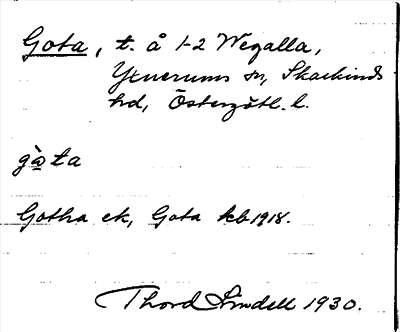 Gota, t. å 1-2 Wegalla,
Yxnerums sn, Skärkinds
hd, Östergötl. l.
gɷ̀ta
Gotha ek, Gota kb 1918.
Thord Lindell 1930.